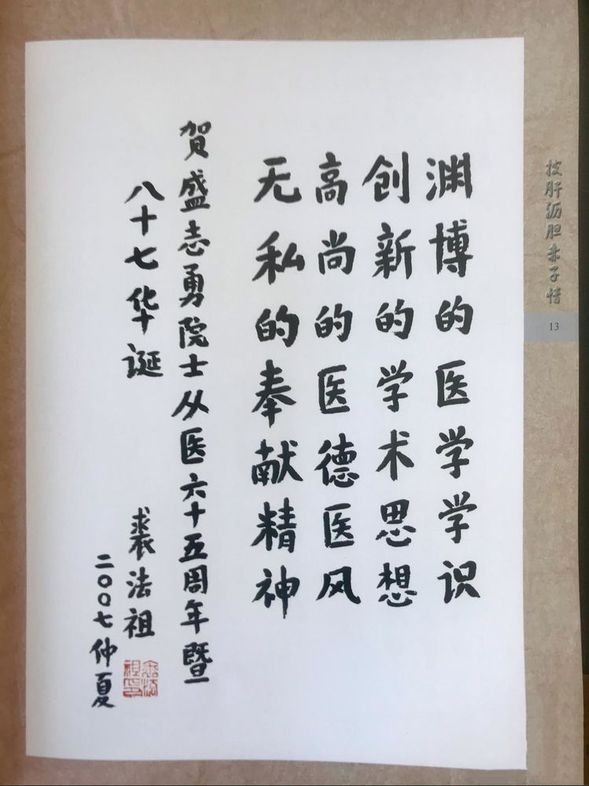 渊博的医学学识
创新的学术思想
高尚的医德医风
无私的奉献精神
贺盛志勇院士从医六十五周年暨
八十七华诞
裘法祖
二〇〇七仲夏
披肝沥胆赤子情
13